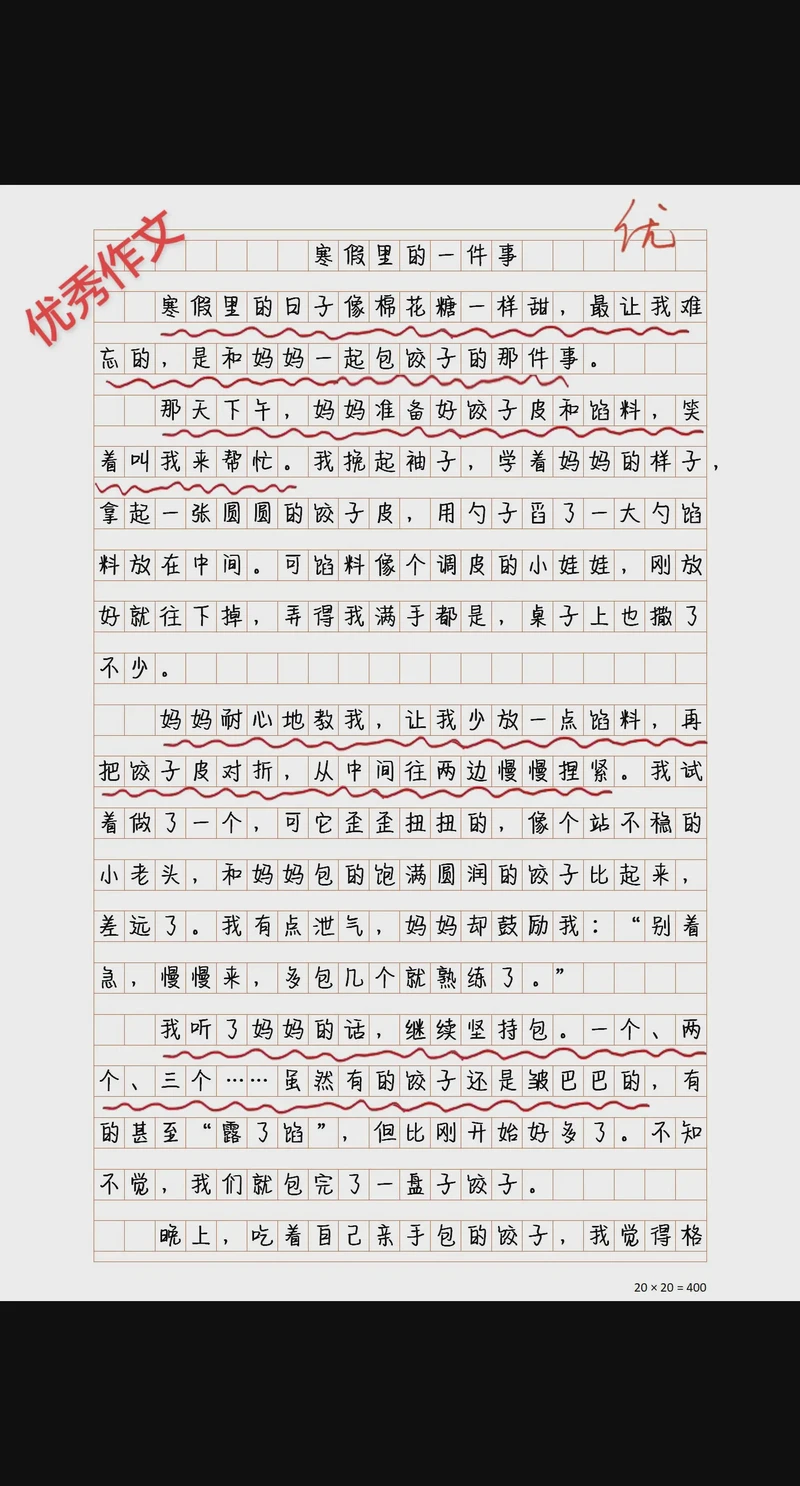 优秀作文
优
寒假里的一件事
寒假里的日子像棉花糖一样甜，最让我难
忘的，是和妈妈一起包饺子的那件事。
那天下午，妈妈准备好饺子皮和馅料，笑
着叫我来帮忙。我挽起袖子，学着妈妈的样子，
拿起一张圆圆的饺子皮，用勺子舀了一大勺馅
料放在中间。可馅料像个调皮的小娃娃，刚放
好就往下掉，弄得我满手都是，桌子上也撒了
不少。
妈妈耐心地教我，让我少放一点馅料，再
把饺子皮对折，从中间往两边慢慢捏紧。我试
着做了一个，可它歪歪扭扭的，像个站不稳的
小老头，和妈妈包的饱满圆润的饺子比起来，
差远了。我有点泄气，妈妈却鼓励我：“别着
急，慢慢来，多包几个就熟练了。”
我听了妈妈的话，继续坚持包。一个、两
个、三个……虽然有的饺子还是皱巴巴的，有
的甚至“露了馅”，但比刚开始好多了。不知
不觉，我们就包完了一盘子饺子。
晚上，吃着自己亲手包的饺子，我觉得格
20×20=400